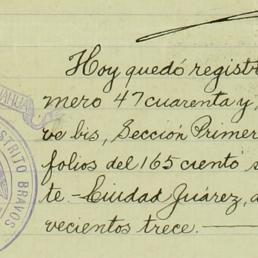 Hoy quedó registr
mero 47 cuarenta y
ve bis, Sección Primer
folios del 165 ciento s
te.- Ciudad Juárez, a
vecientos trece.
STRITO BRAVOS